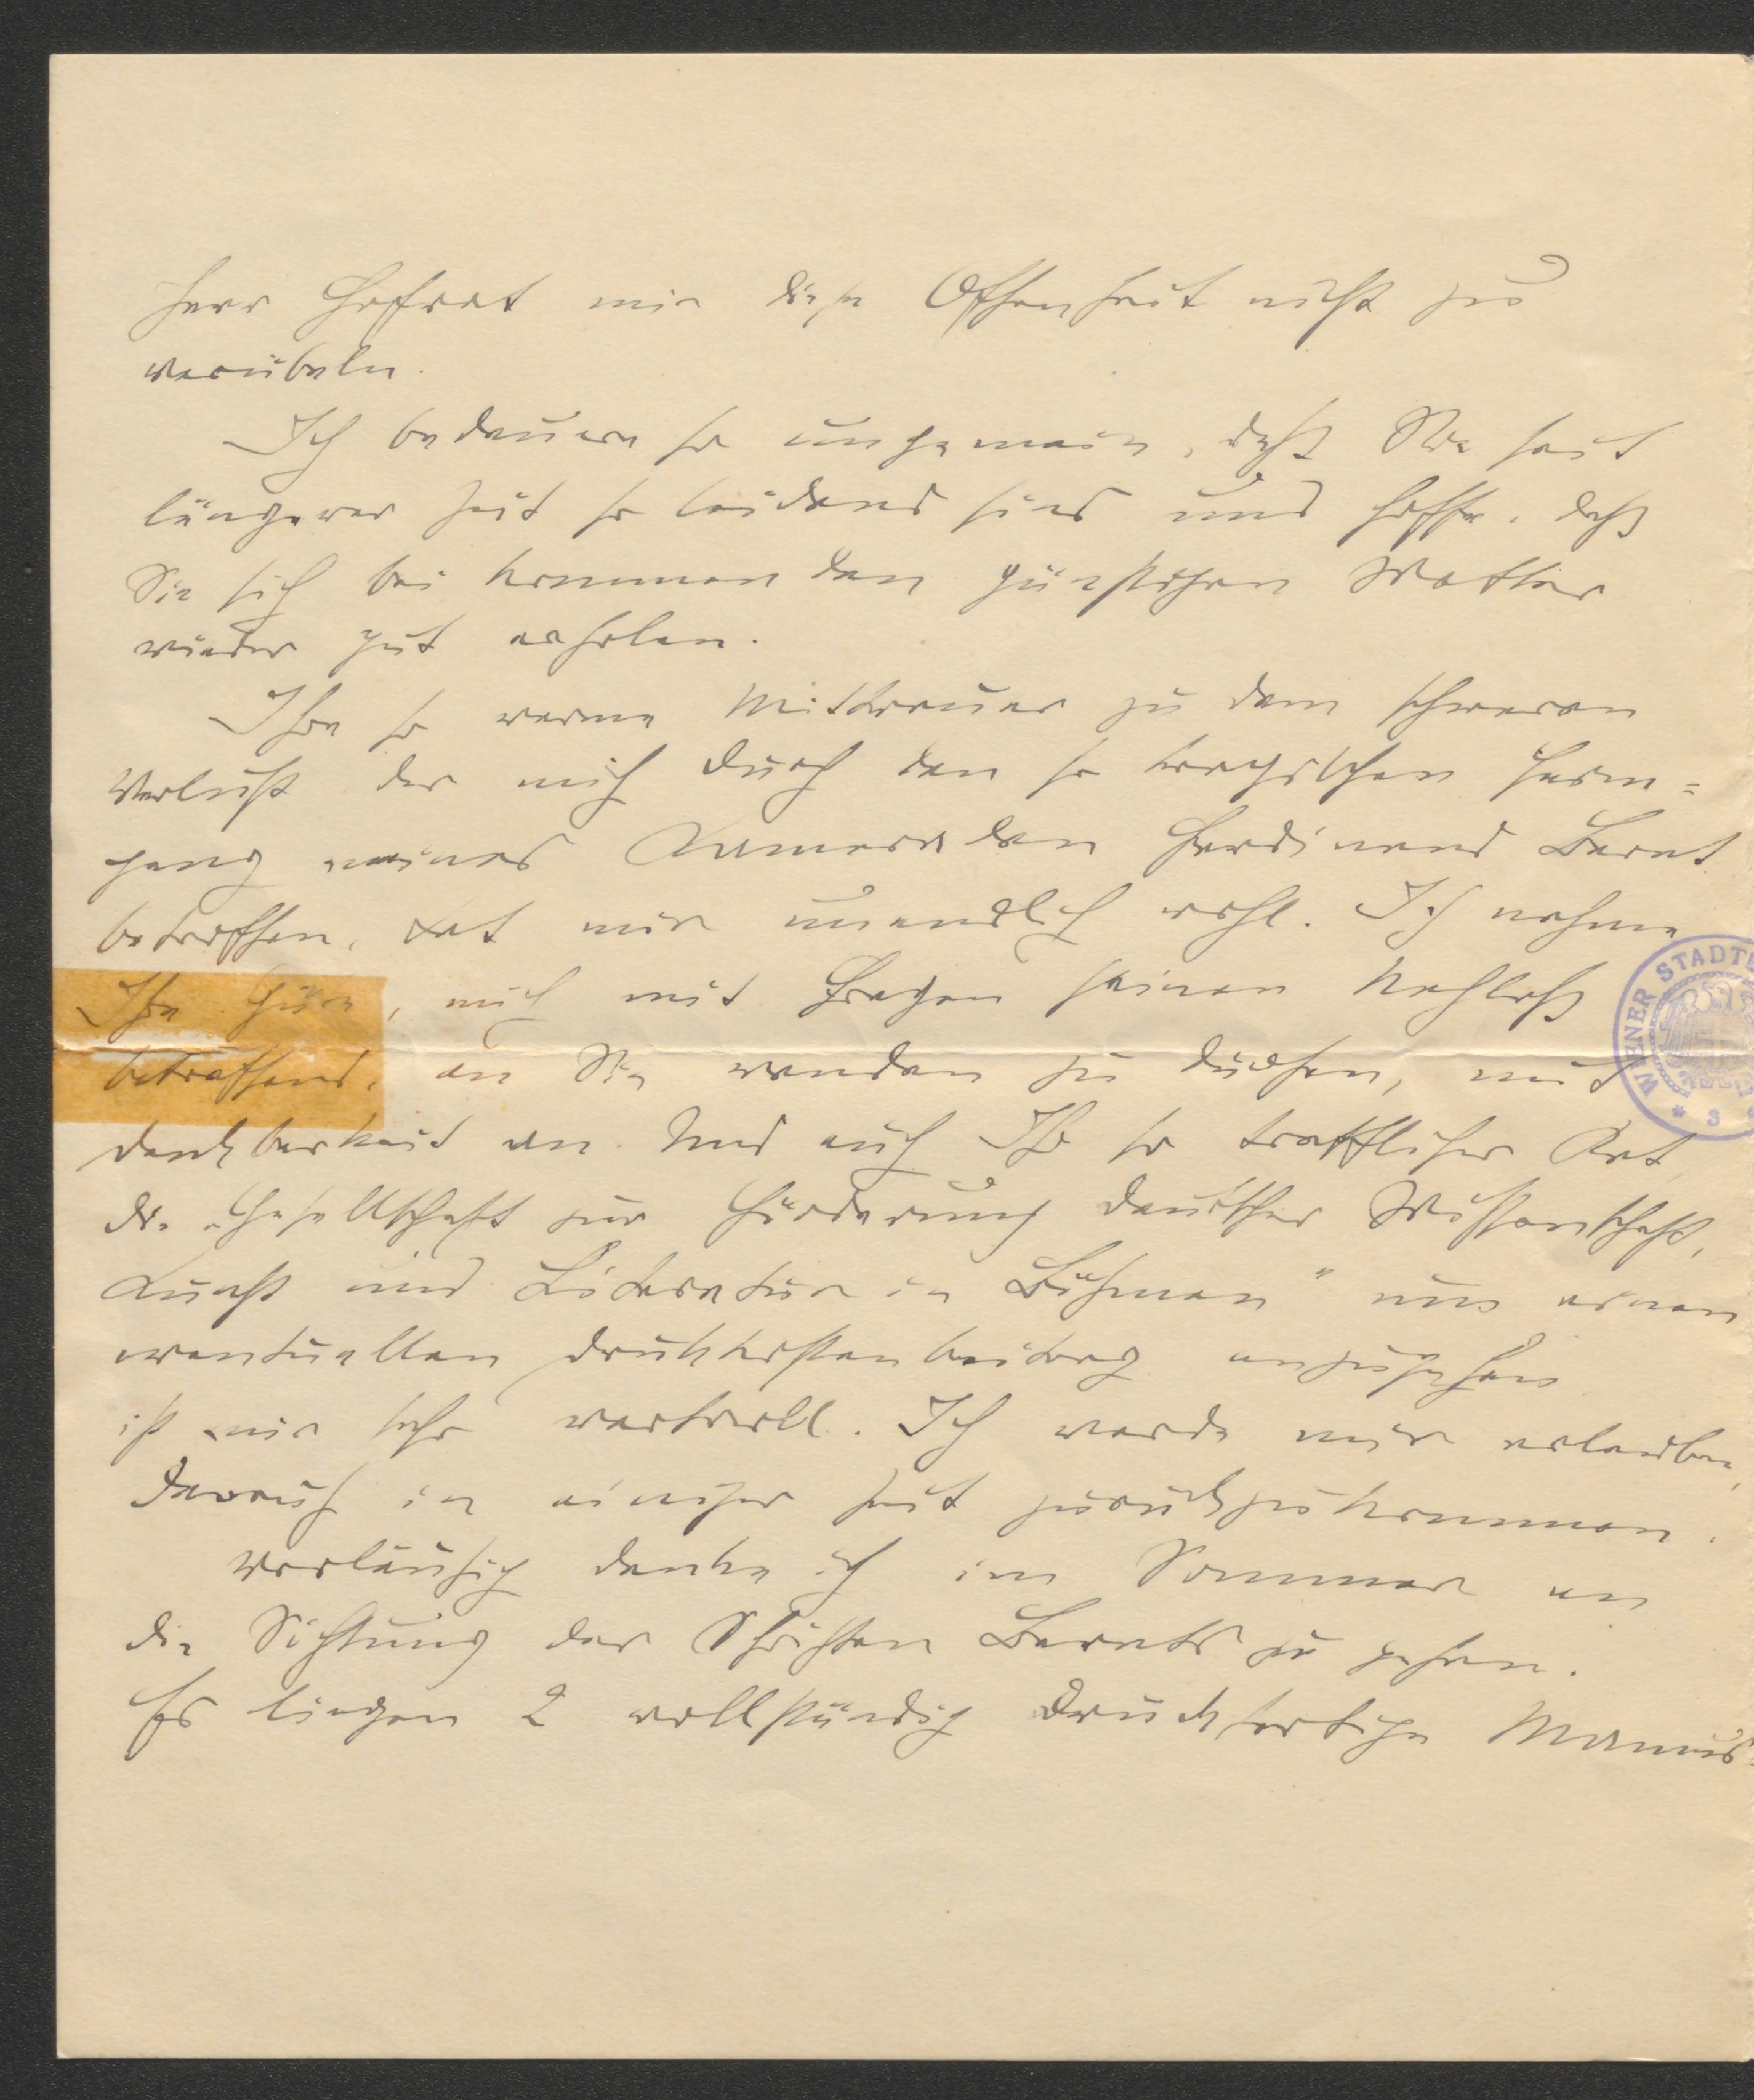 Herr Hofrat mir diese Offenheit nicht zu
verübeln.
Ich bedauere so ungemein, daß Sie seit
längerer Zeit so leidend sind und hoffe, daß
Sie sich bei kommenden günstigen Wetter
wieder gut erholen.
Ihre so warme Mittrauer zu dem schweren
Verlust der mich durch den so tragischen Heim=
gang meines Kameraden Ferdinand Bernt
betroffen, tat mir unendlich wohl. Ich nehme
Ihre Güte, mich mit Fragen seinen Nachlaß
betreffend, an Sie wenden zu dürfen, mit
Dankbarkeit an. Und auch Ihr so trefflicher Rat
die „Gesellschaft zur Förderung deutscher Wissenschaft,
Kunst und Literatur in Böhmen" um einen
eventuellen Druckkostenbeitrag anzugehen
ist mir sehr wertvoll. Ich werde mir erlauben,
darauf in einiger Zeit zurückzukommen.
Vorläufig denke ich im Sommer an
die Sichtung der Schriften Bernts zu gehen.
Es liegen 2 vollständig druckfertige Manus
WIENER STADT